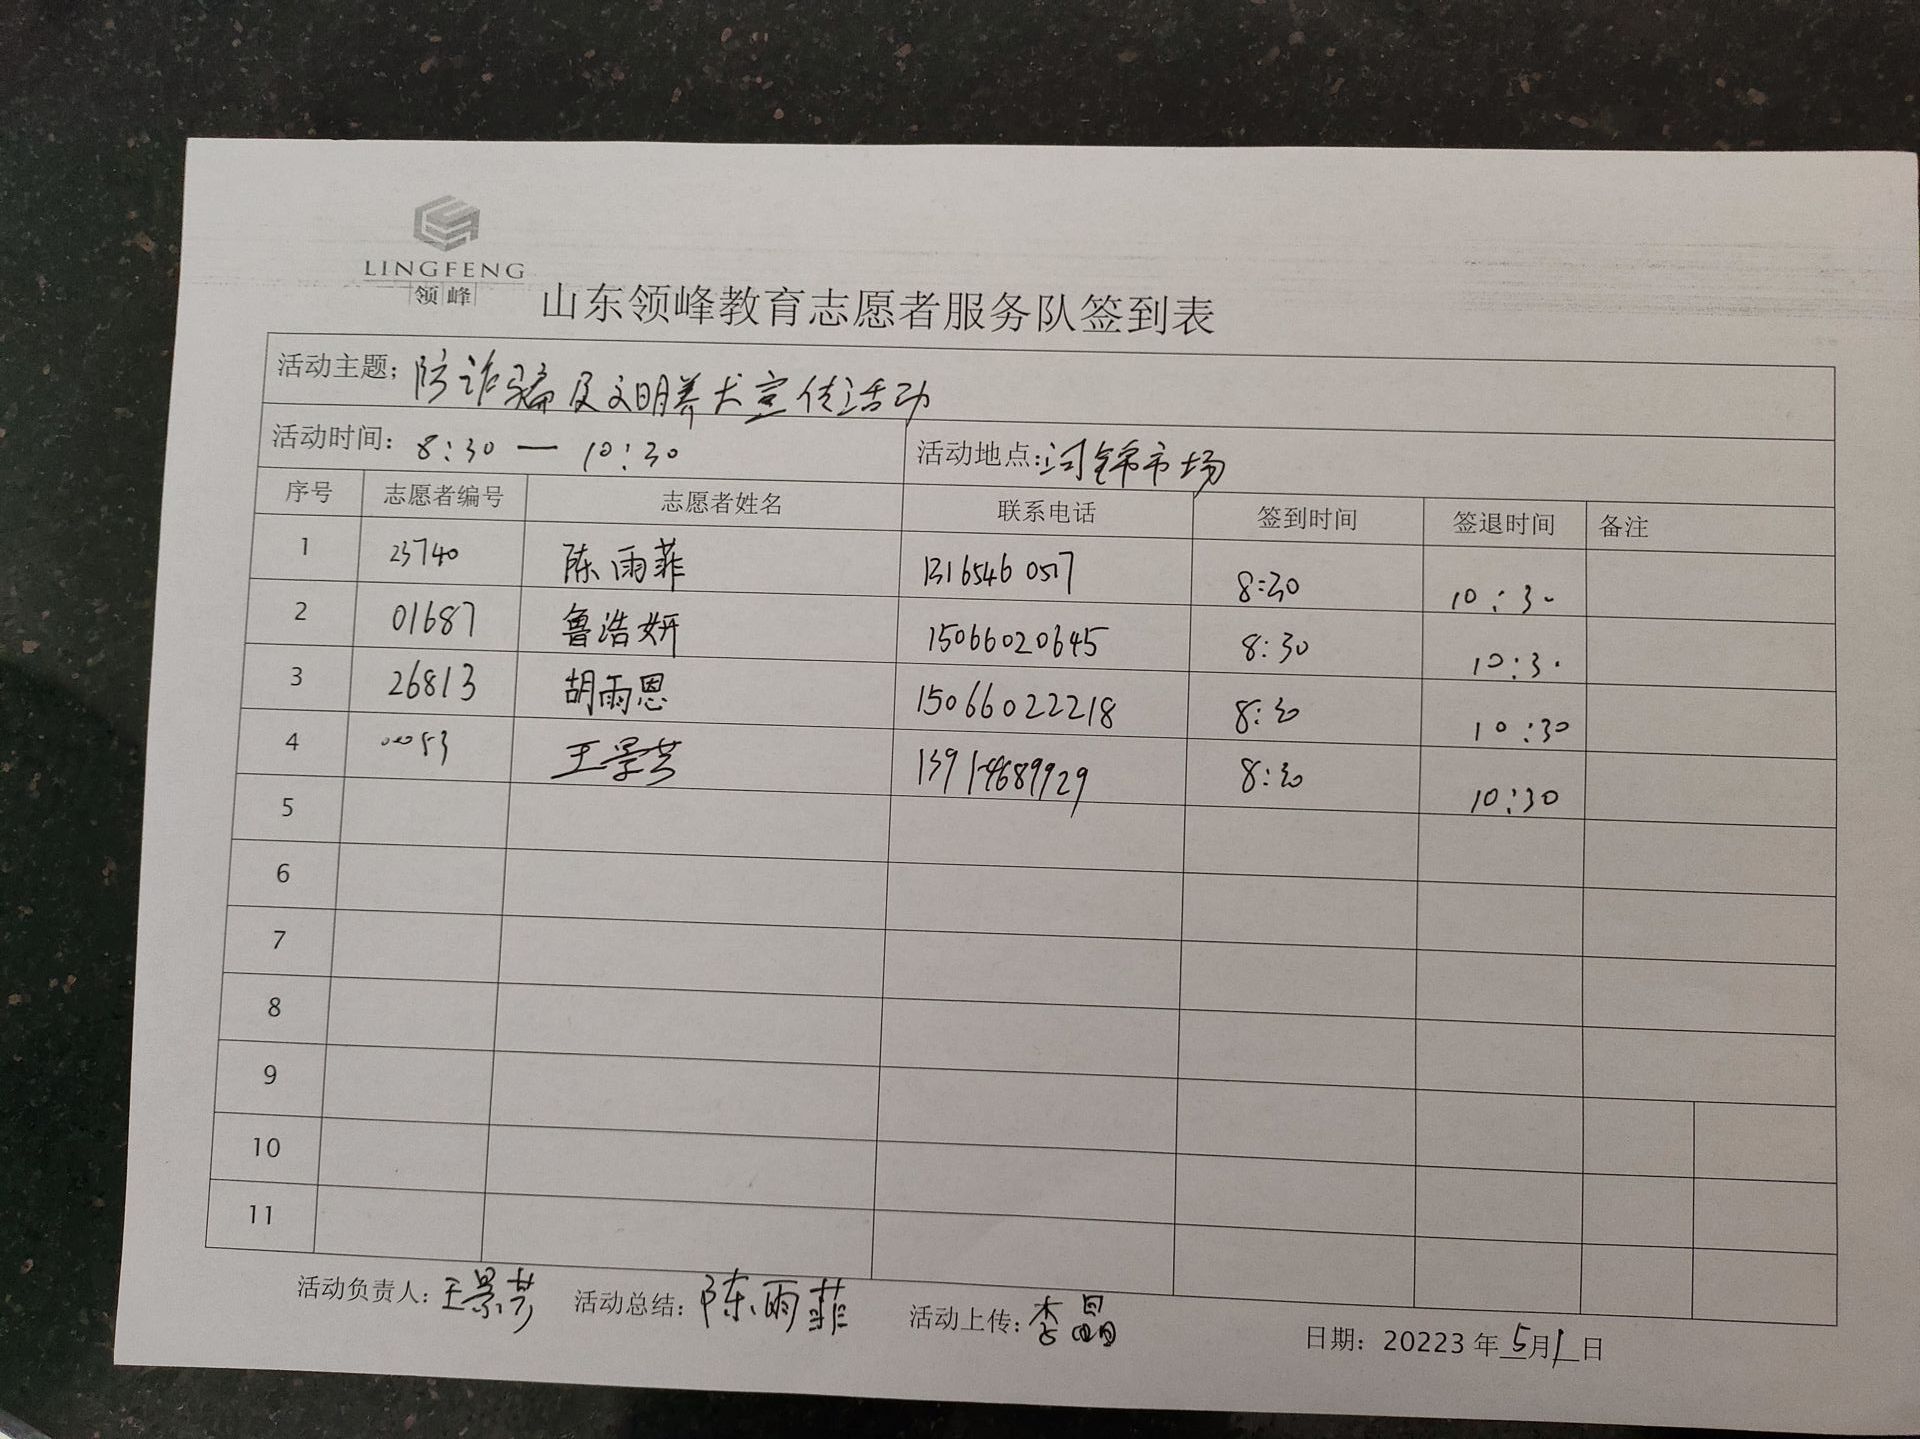 LINGFENG
领峰
山东领峰教育志愿者服务队签到表
活动主题: 防诈骗及文明养犬宣传活动
活动时间: 8:30 — 10:30 活动地点: 市场
序号 志愿者编号 志愿者姓名 联系电话 签到时间 签退时间 备注
1 23740 陈雨菲 8:30 10:30
2 01687 鲁浩妍 15066020645 8:30 10:30
3 26813 胡雨恩 15066022218 8:30 10:30
4 王景芸 8:30 10:30
5
6
7
8
9
10
11
活动负责人: 王景芸 活动总结: 陈雨菲 活动上传: 李晶 日期: 20223 年 5 月 1 日